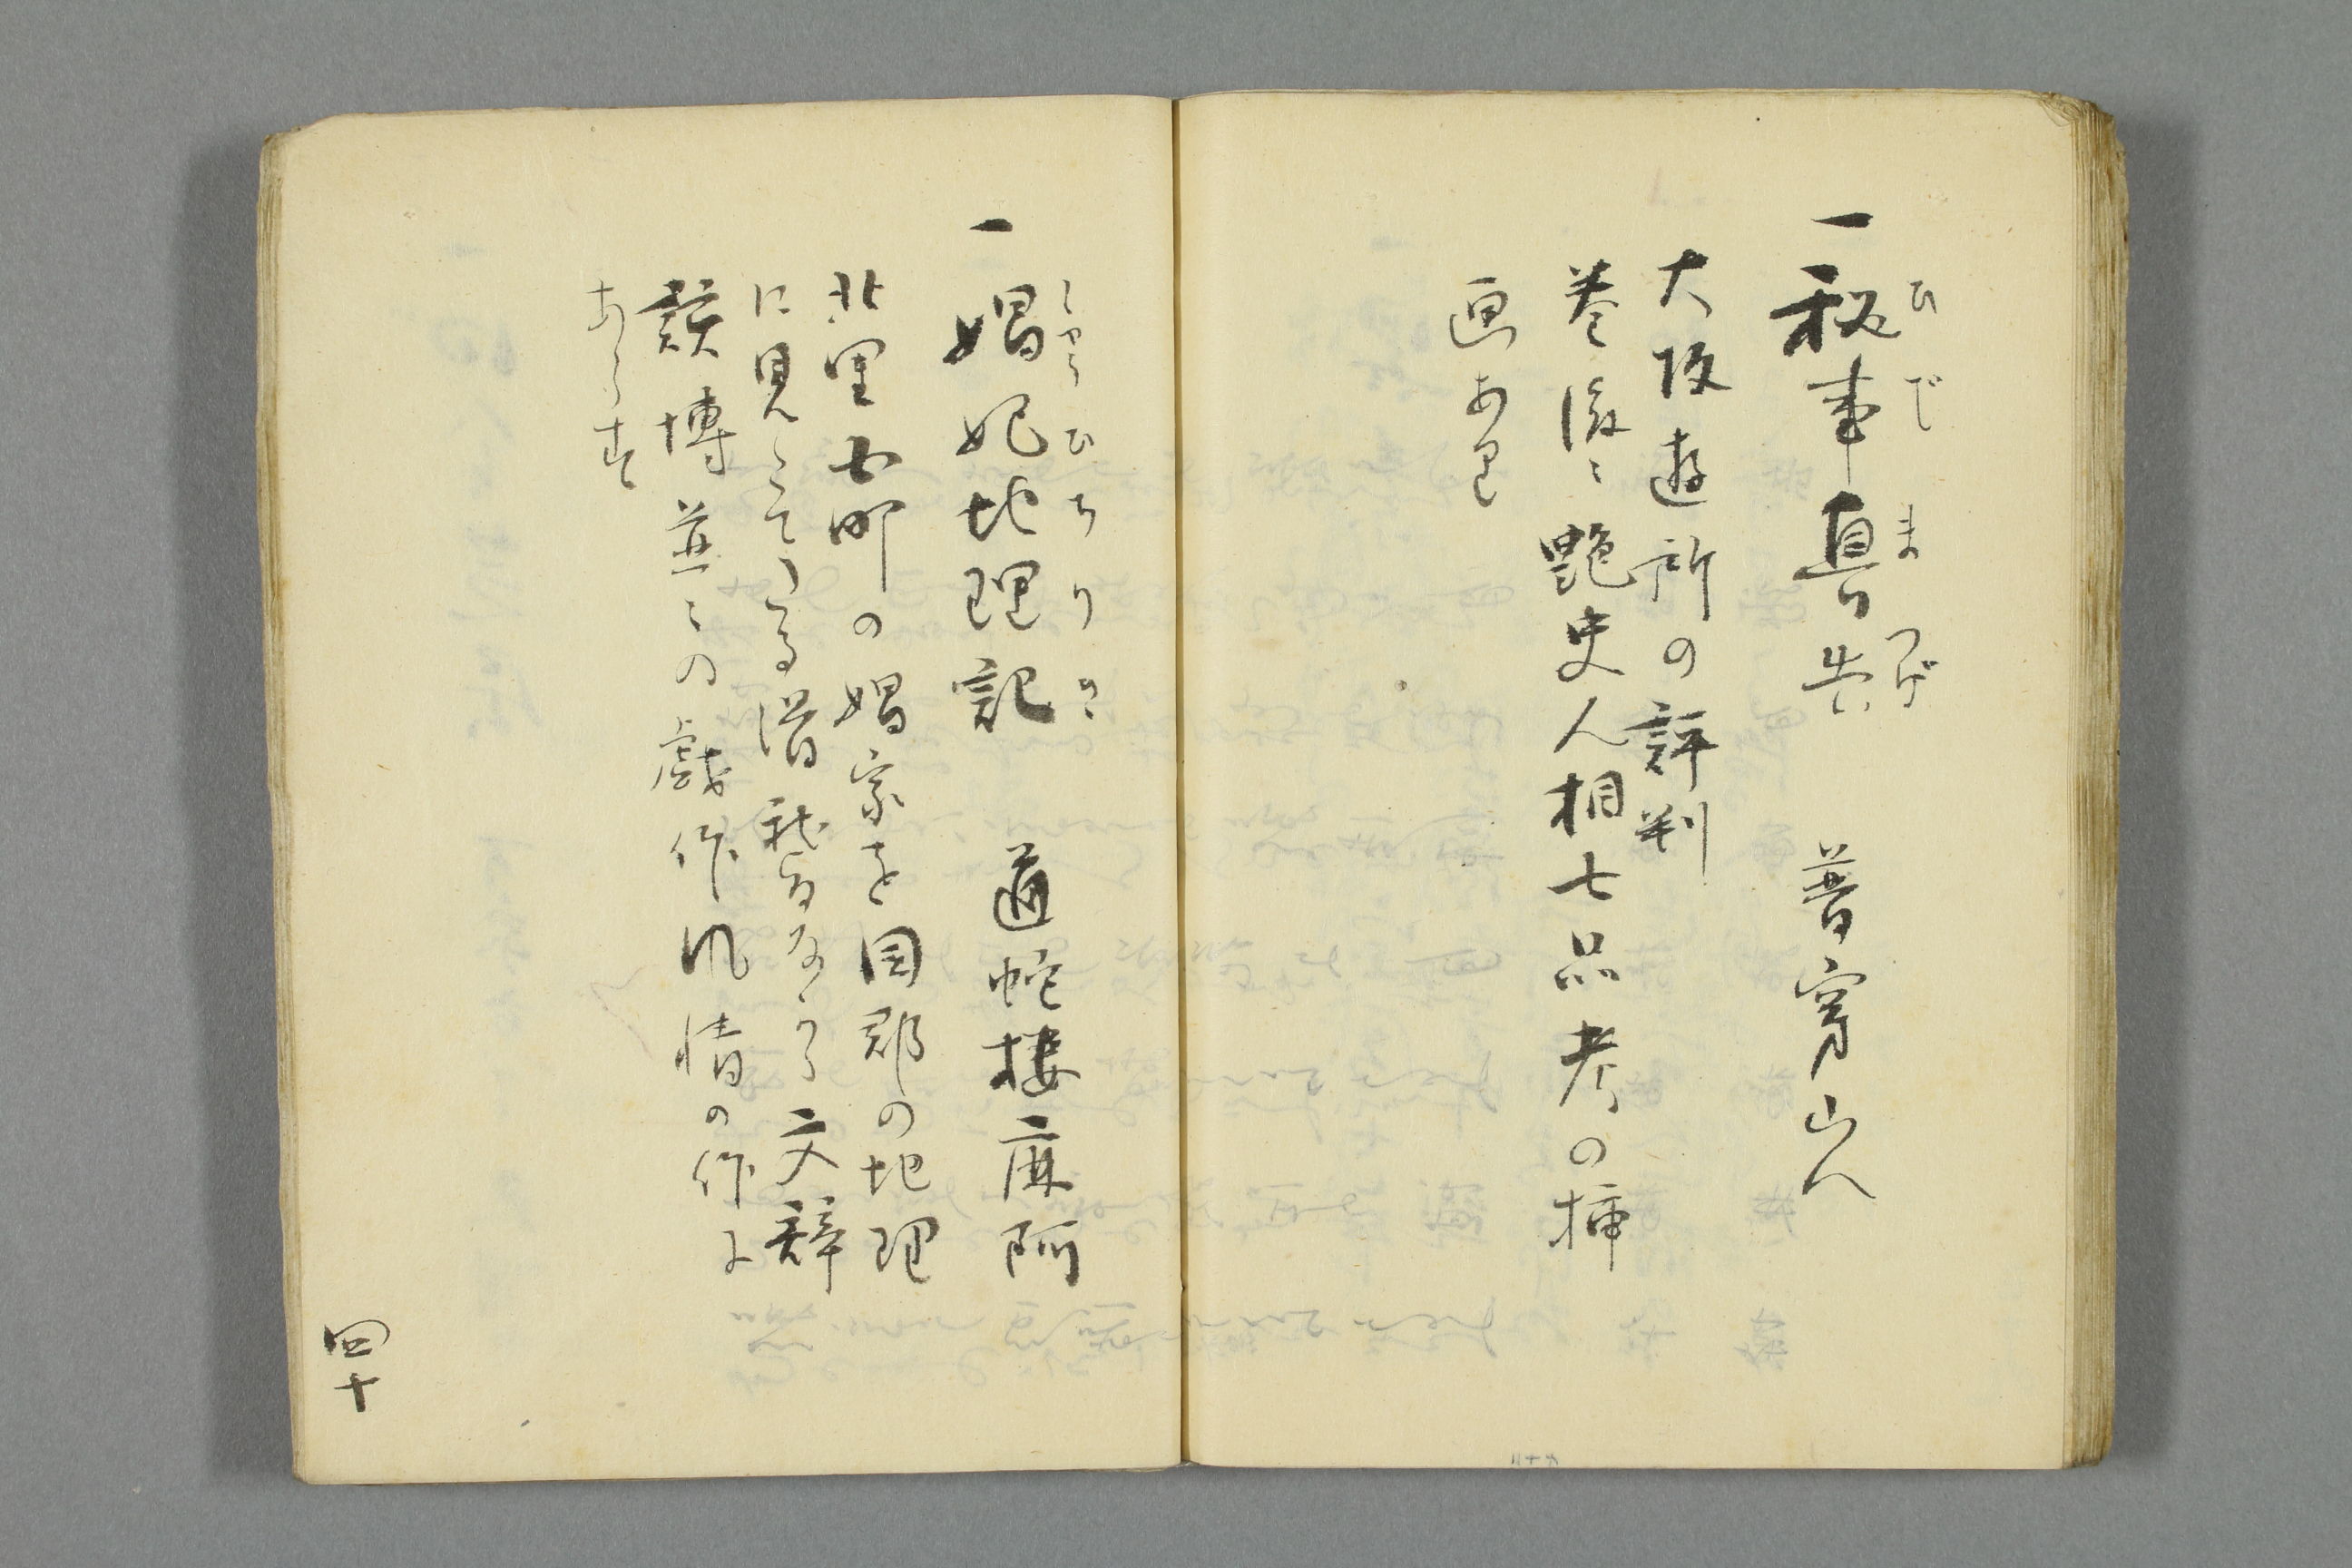 一秘事真告　普穿山人
ひじまつげ
大阪遊所の評判
巻後ニ艶史人相七品考の挿
画あり
一娼妃地理記　道蛇楼麻阿
しやうひちりき
北里七町の娼家を国郡の地理
に見たてたる滑稽ながら文辞
該博並々の戯作風情の作に
あらす
四十